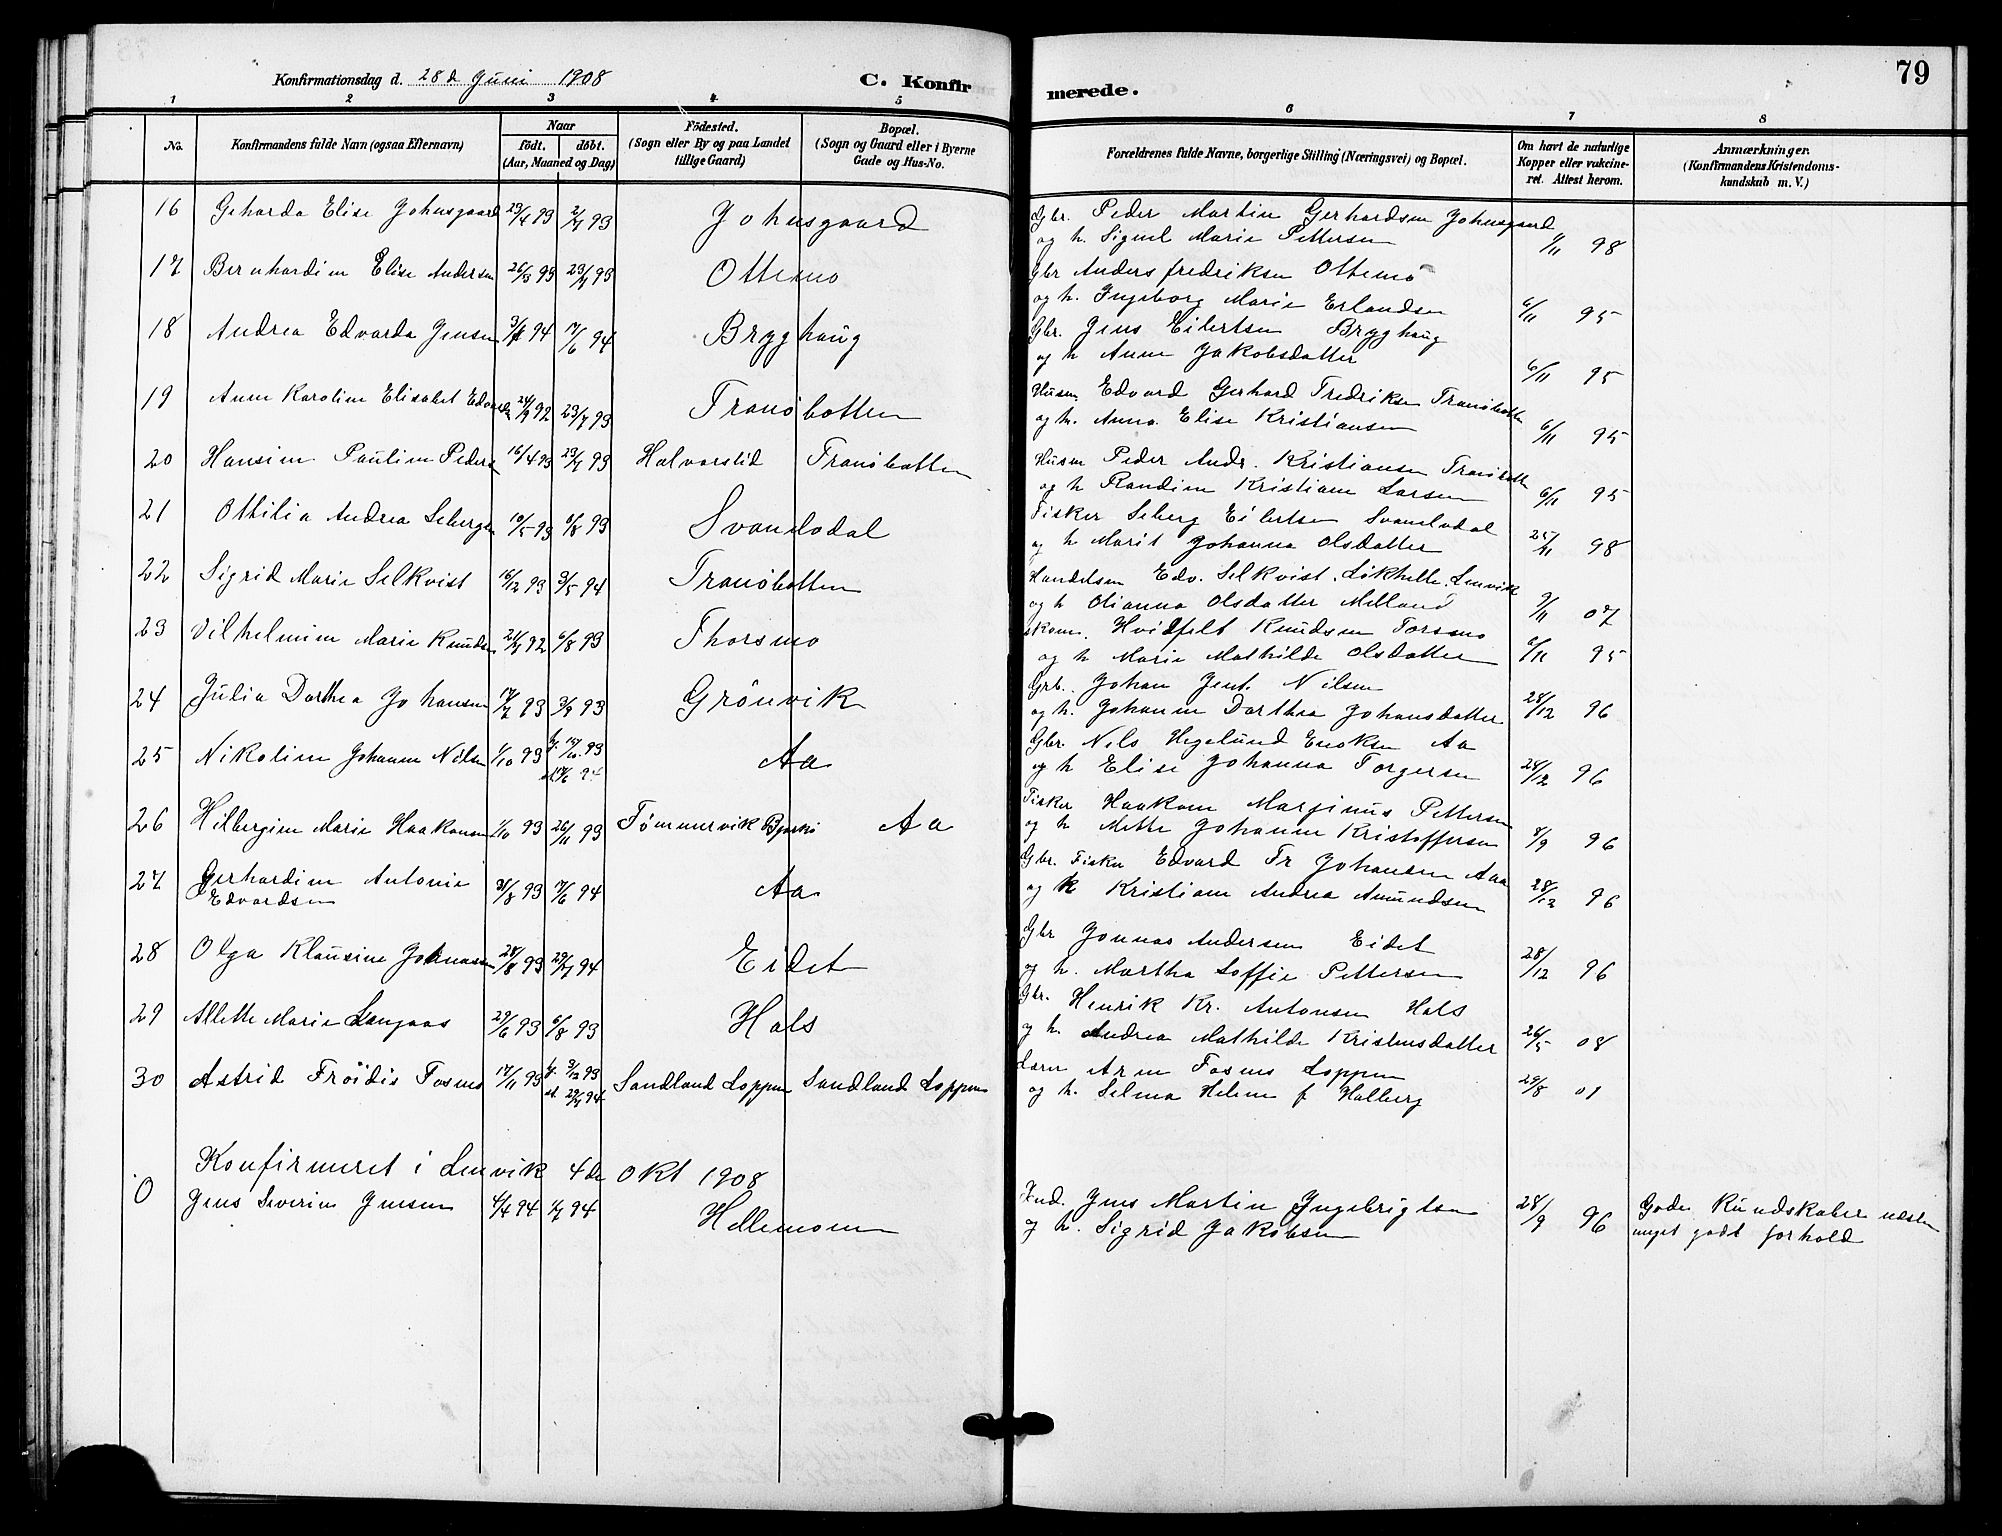 79
Konfirmationsdag d. 28d Juni 1908
C. Konfirmerede.
1 2 3 4 5 6 7 8
No.
Konfirmandens fulde Navn (ogsaa Efternavn)
Naar
födt. döbt.
(Aar, Maaned og Dag)
Födested.
(Sogn eller By og paa Landet
tillige Gaard)
Bopæl.
(Sogn og Gaard eller i Byerne
Gade og Hus-No.
Forældrenes fulde Navne, borgerlige Stilling (Næringsvei) og Bopæl.
Om havt de naturlige
Kopper eller vakcine-
ret. Attest herom.
Anmærkninger.
(Konfirmandens Kristendoms-
kundskab m. V.)
16 Geharda Elise Johnsgaard 23/4 93 2/7 93 Johnsgaard Gbr. Peder Martin Gerhardsen Johnsgaard
og h. Signel Marie Pettersen 1/11 98
17 Bernhardin Elise Andersen 26/3 93 23/7 93 Ottemo Gbr Anders fredriksen Ottemo
og h. Ingeborg Marie Erlandsen 6/11 95
18 Andrea Edvarda Jensen 94 17/6 94 Bryghaug Gbr. Jens Eilertsen Bryghaug
og h Anne Jakobsdatter 6/11 95
19 Anne Karolin Elisabet 24/9 92 23/7 93 Tranöbotten Husm Edvard Gerhard Fredriksen Tranöbotten
og h. Anna Elise Kristiansen 6/11 95
20 Hansine Pauline Peders 16/4 93 23/7 93 Halvorslid Tranöbotten Husm Peder Andr. Kristiansen Tranöbotten
og h Randine Kristiane Larsen 6/11 95
21 Ottilia Andrea Sebergsen 10/5 93 6/8 93 Svanelvdal Fisker Seberg Eilertsen Svanelvdal
og h Marit Johanna Olsdatter 25/11 98
22 Sigrid Marie Selkvist 16/12 93 3/5 94 Tranöbotten Handelsm Edv. Selkvist. Løkhelle. Lenvik
og h Olianna Olsdatter 9/11 07
23 Vilhelmine Marie Knudsen 92 6/8 93 Thorsmo Hvidfelt Knudsen Torsmo
og h Marie Mathilde Olsdatter 6/11 95
24 Julia Dorthea Johansen 93 3/9 93 Grönvik Grb. Johan Jent. Nilsen
og h. Johanne Dorthea Johansdatter 28/12 96
25 Nikoline Johanne Nilsen 1/10 93 93 94 Aa Gbr. Nels Hegelund Enoksen Aa
og h Elise Johanna Torgersen 28/12 96
26 Hilbergine Marie Haakonsen 1/10 93 26/11 93 Tömmervik Bjarkö Aa Fisker Haakon Marginus Pettersen
og h Mette Johanne Kristoffersen 8/9 96
27 Gerhardine Antonie
Edvardsen 31/8 93 17/6 94 Aa Gbr. Fisker Edvard Fr Johansen Aaa
og h Kristiane Andrea Amundsen 28/12 96
28 Olga Klausine Johnassen 28/8 93 29/7 94 Eidet Gbr Jonnas Andersen Eidet
og h. Martha Soffie Pettersen 28/12 96
29 Allette Marie Langaas 29/6 93 6/8 93 Hals Gbr. Henrik Kr. Antonsen Hals
og h. Andrea Mathilde Kristensdatter 26/5 08
30 Astrid Fröidis Fosnes 17/11 93 3/12 93 94 Sandland Loppen Sandland Loppen Lærer Arne Fosnes Loppen
og h. Selma Helene f Halberg 29/8 01
Konfirmeret i Lenvik 4de Okt 1908
0 Jens Severin Jensen 4/4 94 1/7 94 Hellemoen Ind. Jens Martin Ingebrigtsen
og h. Sigrid Jakobsen 28/9 96 Gode Kundskaber næsten
meget godt forhold